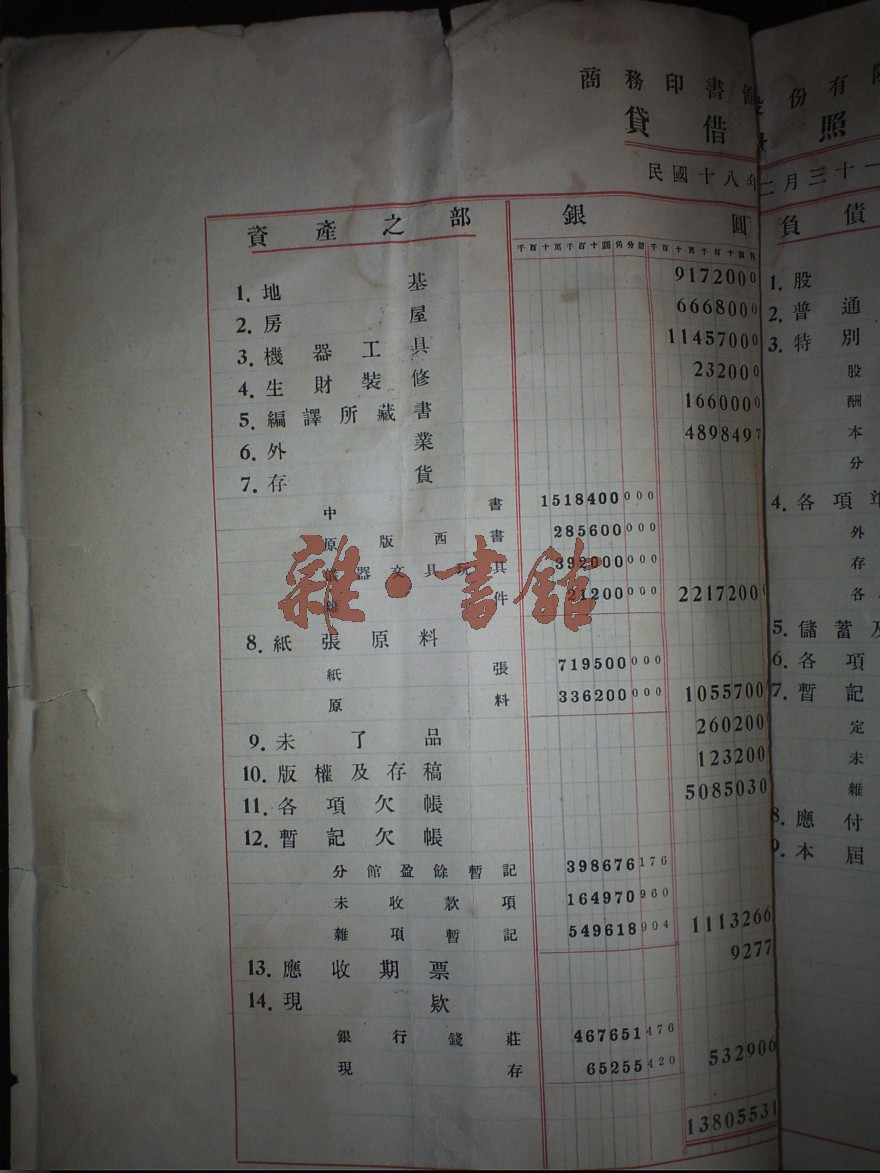 商務印書館 份有限
貸借 照
民國十八年 二月三十一
資產之部 銀圓 負債
千百十萬千百十圓角分釐 千百十萬千百十圓角
1. 地基 9172000 1. 股
2. 房屋 6668000 2. 普通
3. 機器工具 11457000 3. 特別
4. 生財裝修 232000 股
5. 編譯所藏書 1660000 酬
6. 外業 4898497 本
7. 存貨 分
中書 1518400000 4. 各項準
原版西書 285600000 外
儀器文具玩具 392000000 存
雜件 21200000 2217200 各
8. 紙張原料 5. 儲蓄及
紙張 719500000 6. 各項
原料 336200000 1055700 7. 暫記
9. 未了品 260200 定
10. 版權及存稿 123200 未
11. 各項欠帳 5085030 雜
12. 暫記欠帳 8. 應付
分館盈餘暫記 398676176 9. 本屆
未收款項 164970960
雜項暫記 549618904 1113266
13. 應收期票 9277
14. 現款
銀行錢莊 467651476
現存 65255420 532906
13805531
雜·書館